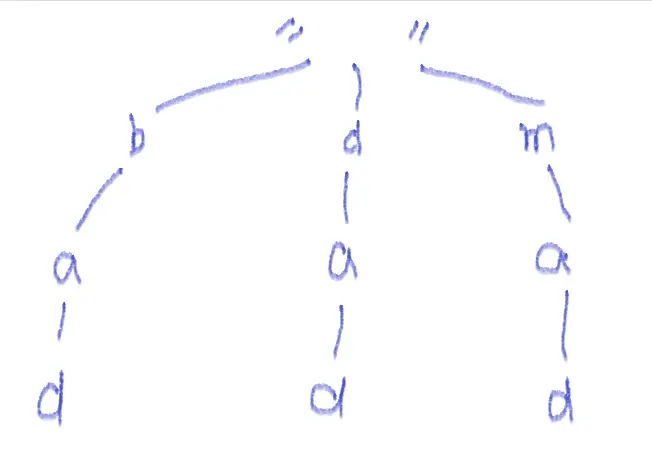 " "
b d m
a a a
d d d